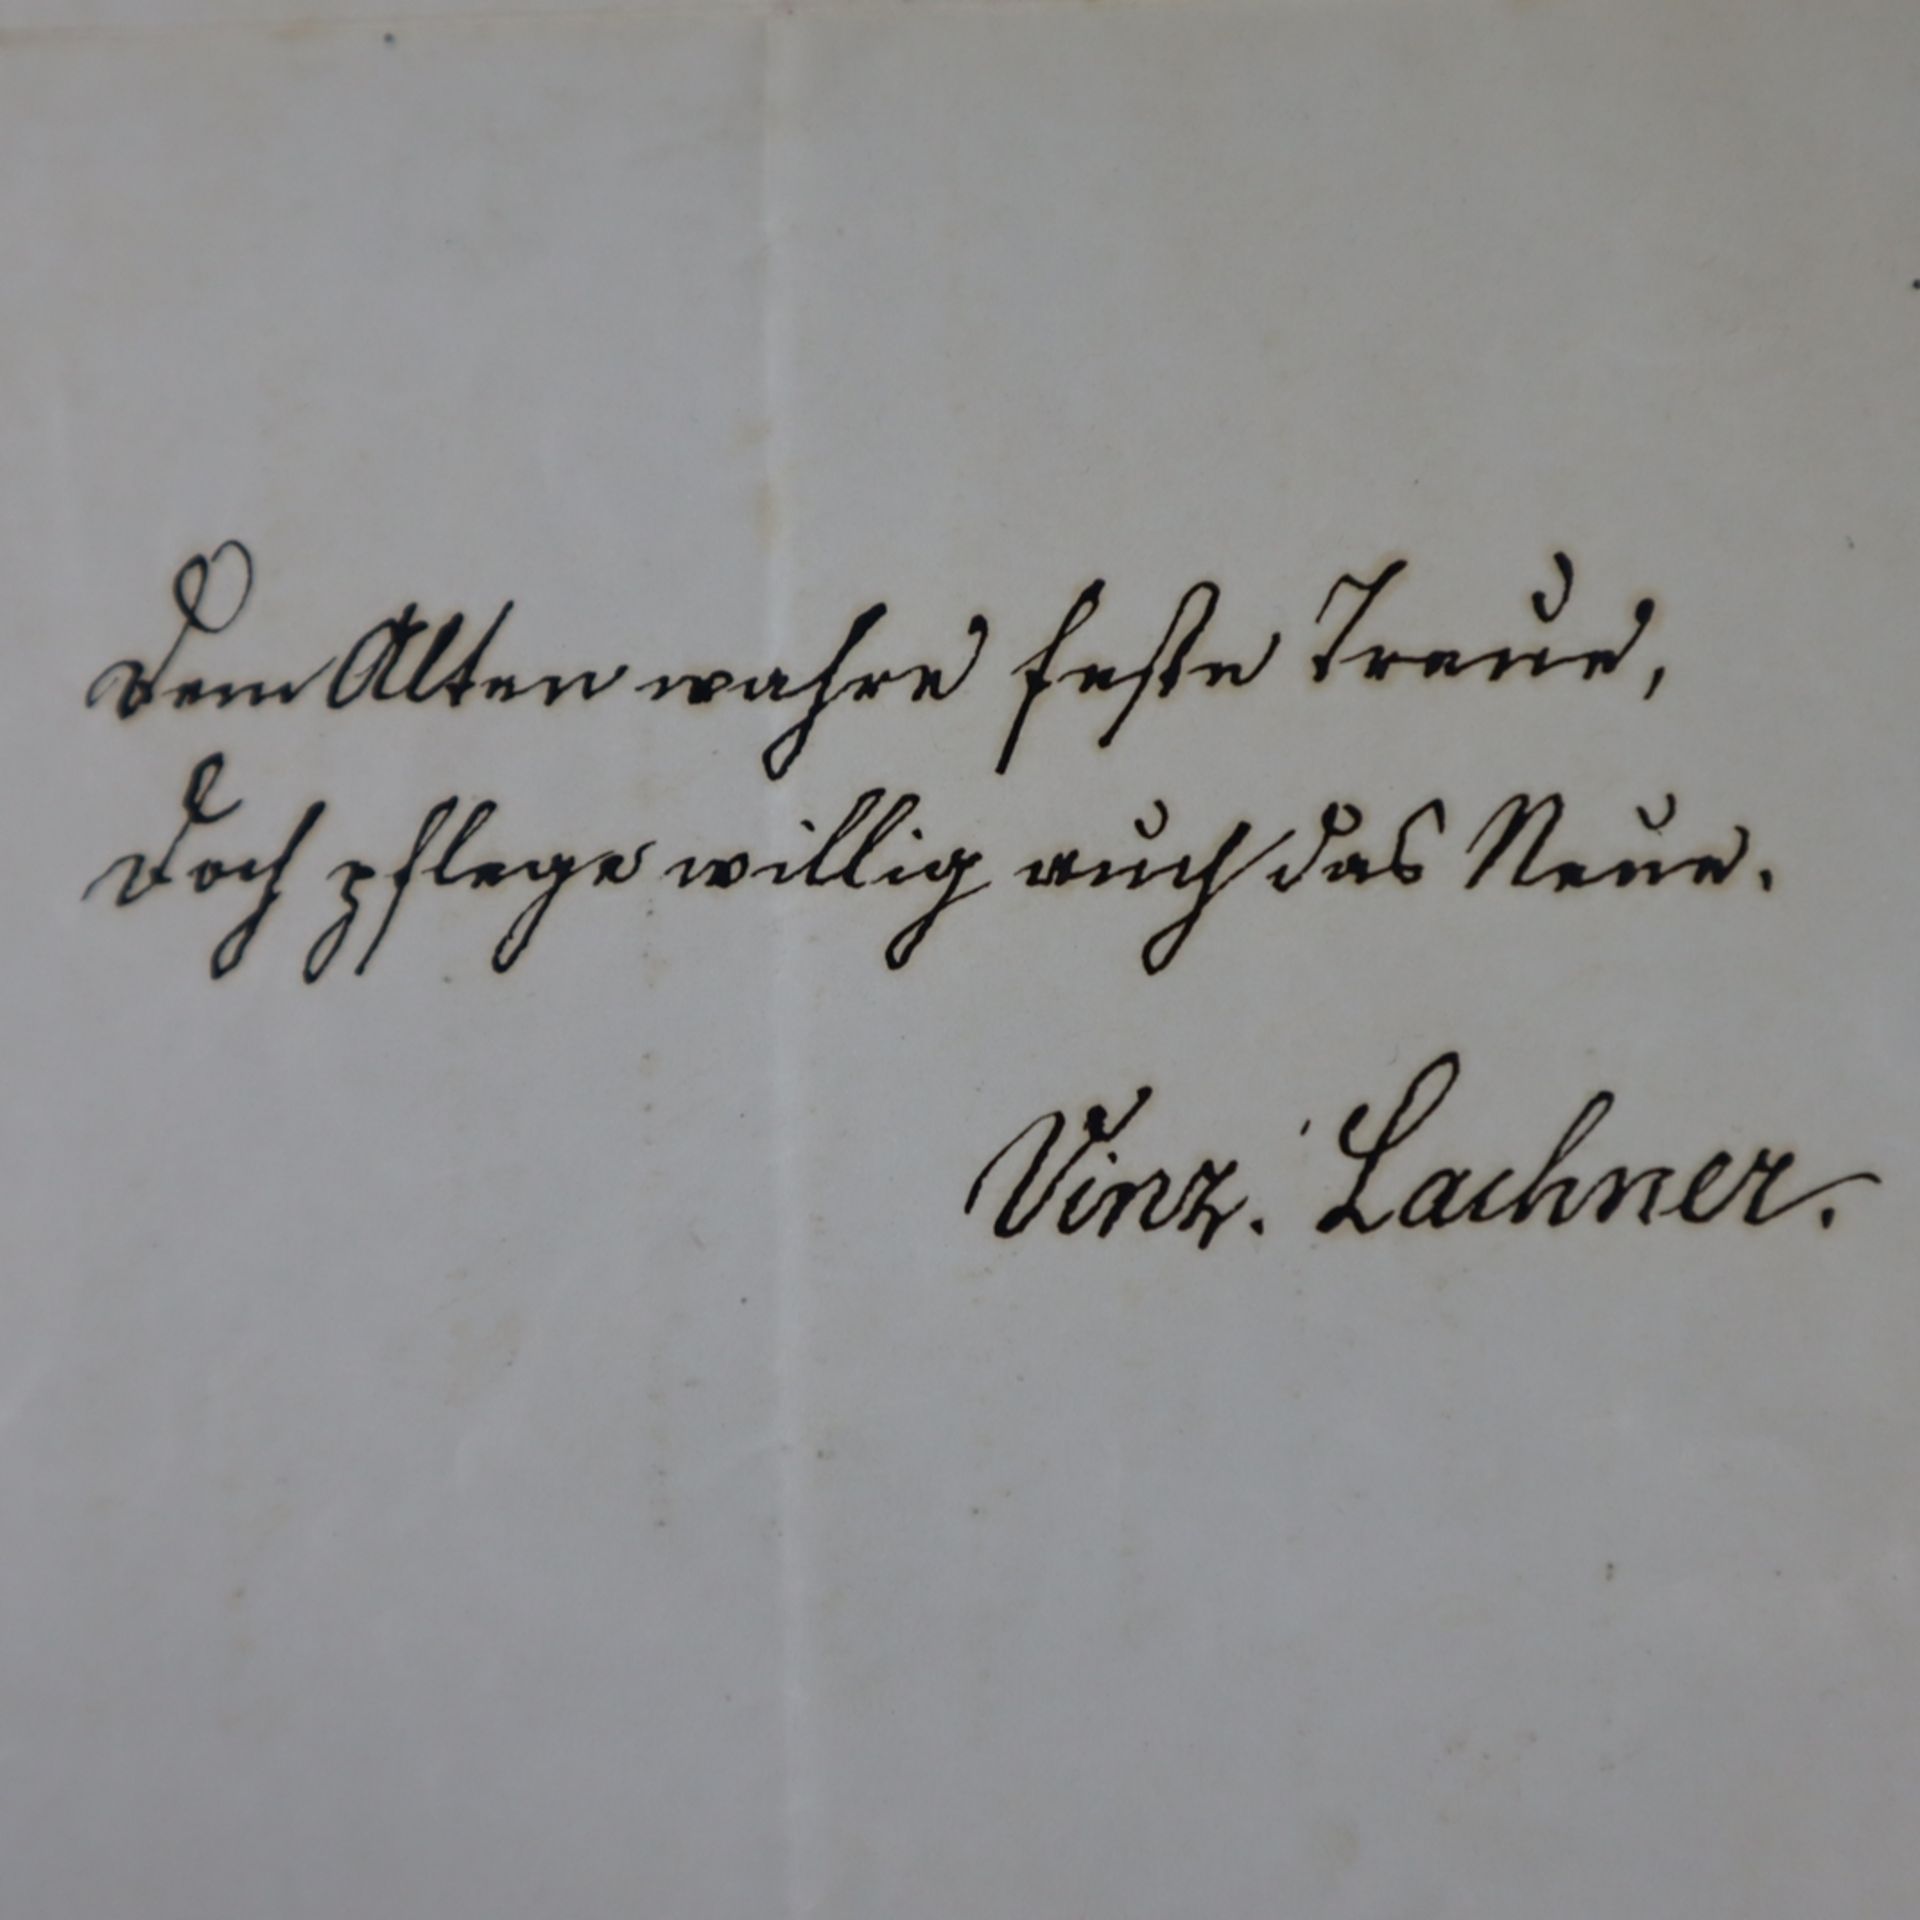 Dem Alten wahre feste Treue,
Doch pflege willig auch das Neue.
Vinz. Lachner.